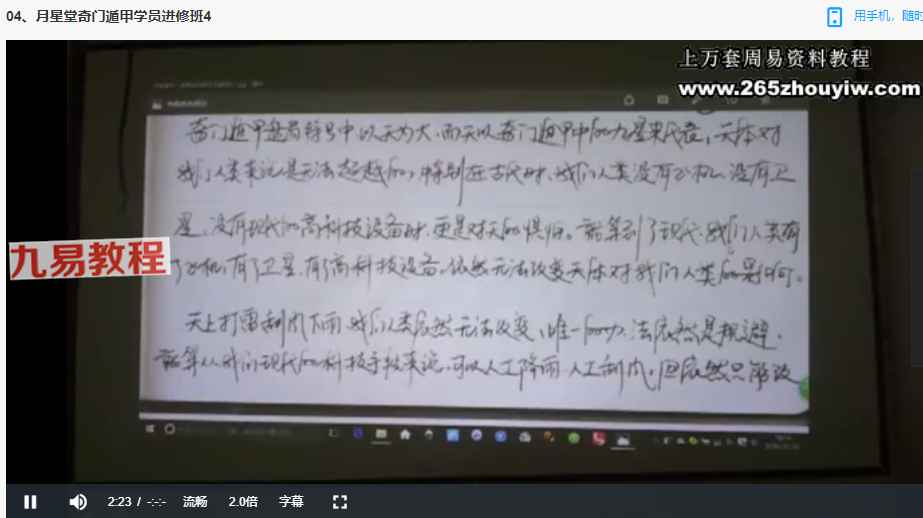 04、月星堂奇门遁甲学员进修班4
用手机，随时
上万套周易资料教程
www.265zhouyiw.com
奇门遁甲盘局符号中以天为大，而天以奇门遁甲中的九星来代替，天体对
我们人类来说是无法超越的，特别在古代时，我们人类没有飞机，没有卫
星，没有现代的高科技设备时，更是对天的惧怕。就算到了现代，我们人类有
了飞机，有了卫星，有了高科技设备，依然无法改变天体对我们人类的影响。
九易教程
天上打雷刮风下雨，我们人类依然无法改变，唯一的办法依然是规避。
就算从我们现代的科技手段来说，可以人工降雨，人工刮风，但依然只能改
2:23 / -:-:-
流畅
2.0倍
字幕